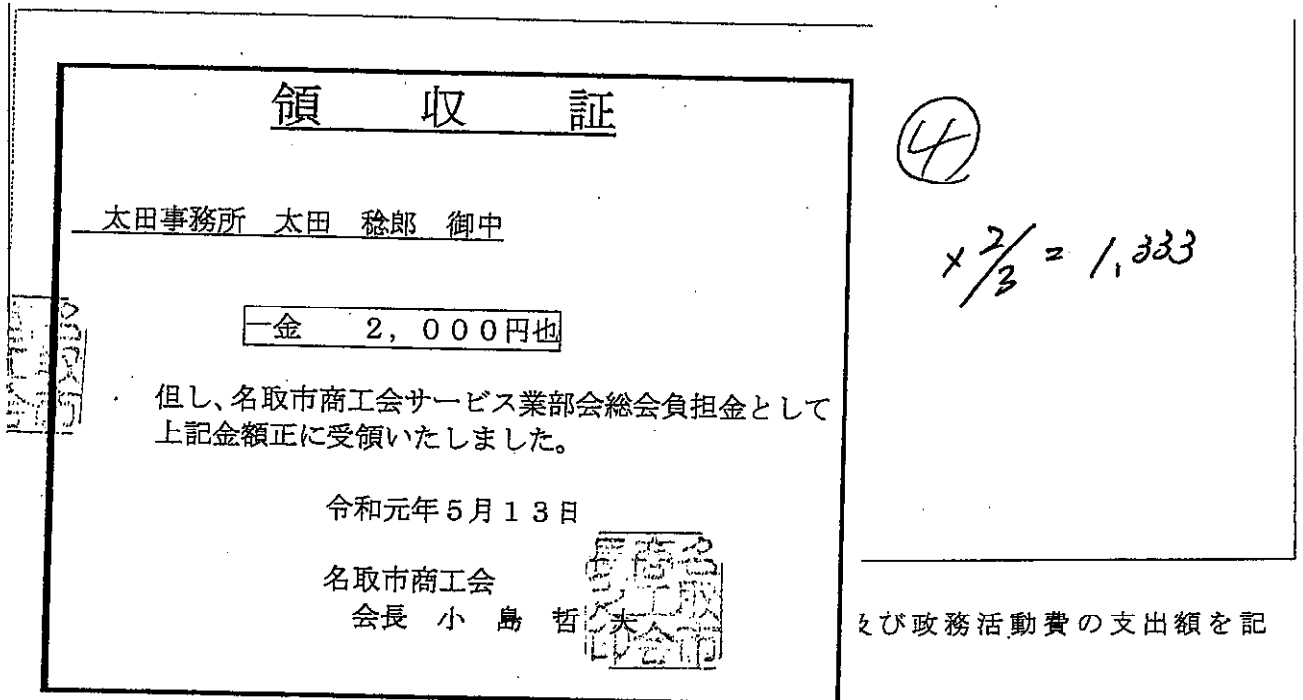 領 収 証
太田事務所 太田 稔郎 御中
一金 2,000円也
但し、名取市商工会サービス業部会総会負担金として
上記金額正に受領いたしました。
令和元年5月13日
名取市商工会
会長 小 島 哲 夫
④
×2/3=1,333
及び政務活動費の支出額を記